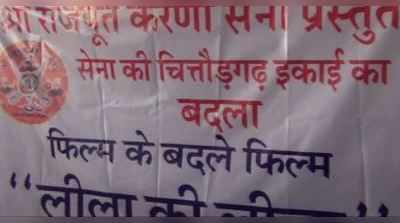 श्री राजपूत करणी सेना प्रस्तुत
सेना की चित्तौड़गढ़ इकाई का
बदला
फिल्म के बदले फिल्म
“लीला की